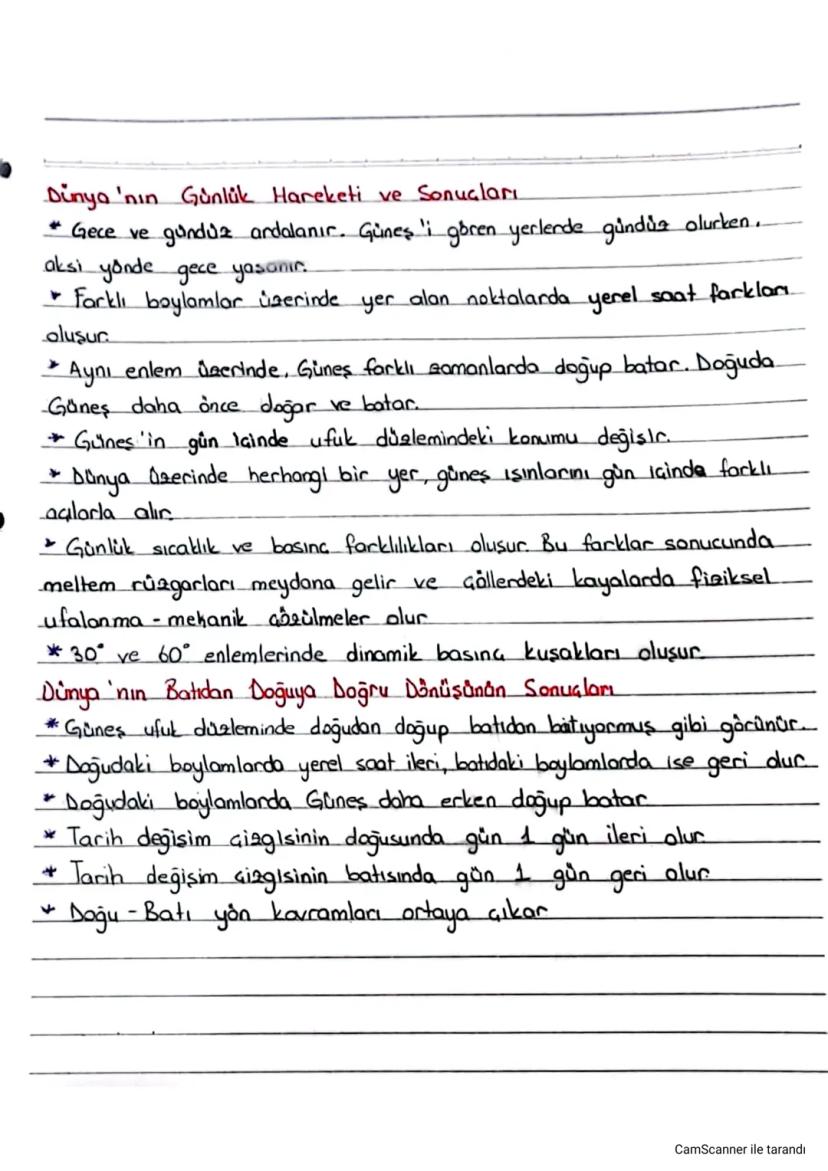 Dünya'nın Günlük Hareketi ve Sonuçları
* Gece ve gündüz ardalanır. Güneş'i gören yerlerde gündüz olurken,
aksi yönde gece yaşanır.
* Farklı boylamlar üzerinde yer alan noktalarda yerel saat farkları
oluşur.
* Aynı enlem üzerinde, Güneş farklı zamanlarda doğup batar. Doğuda
Güneş daha önce doğar ve batar.
* Güneş'in gün içinde ufuk düzlemindeki konumu değişir.
* Dünya üzerinde herhangi bir yer, güneş ışınlarını gün içinde farklı
açılarla alır.
* Günlük sıcaklık ve basınç farklılıkları oluşur. Bu farklar sonucunda
meltem rüzgarları meydana gelir ve çöllerdeki kayalarda fiziksel
ufalanma - mekanik çözülmeler olur
* 30° ve 60° enlemlerinde dinamik basınç kuşakları oluşur.
Dünya'nın Batıdan Doğuya Doğru Dönüşünün Sonuçları
* Güneş ufuk düzleminde doğudan doğup batıdan batıyormuş gibi görünür.
* Doğudaki boylamlarda yerel saat ileri, batıdaki boylamlarda ise geri dur
* Doğudaki boylamlarda Güneş daha erken doğup batar
* Tarih değişim çizgisinin doğusunda gün 1 gün ileri olur
* Tarih değişim çizgisinin batısında gün 1 gün geri olur.
* Doğu - Batı yön kavramları ortaya çıkar
CamScanner ile tarandı